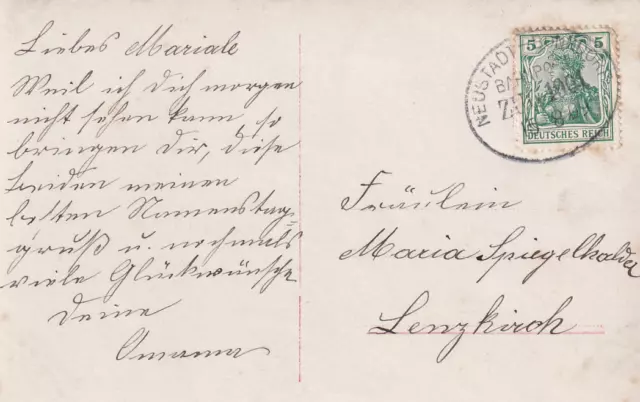 Liebes Mariale
Weil ich Dich morgen
nicht sehen kann, so
bringen Dir, diese
beiden meinen
besten Namenstag=
gruß u. nochmals
viele Glückwünsche
Deine
Omama
5 5
DEUTSCHES REICH
NEUSTADT
Fräulein
Maria Spiegelhalder
Lenzkirch